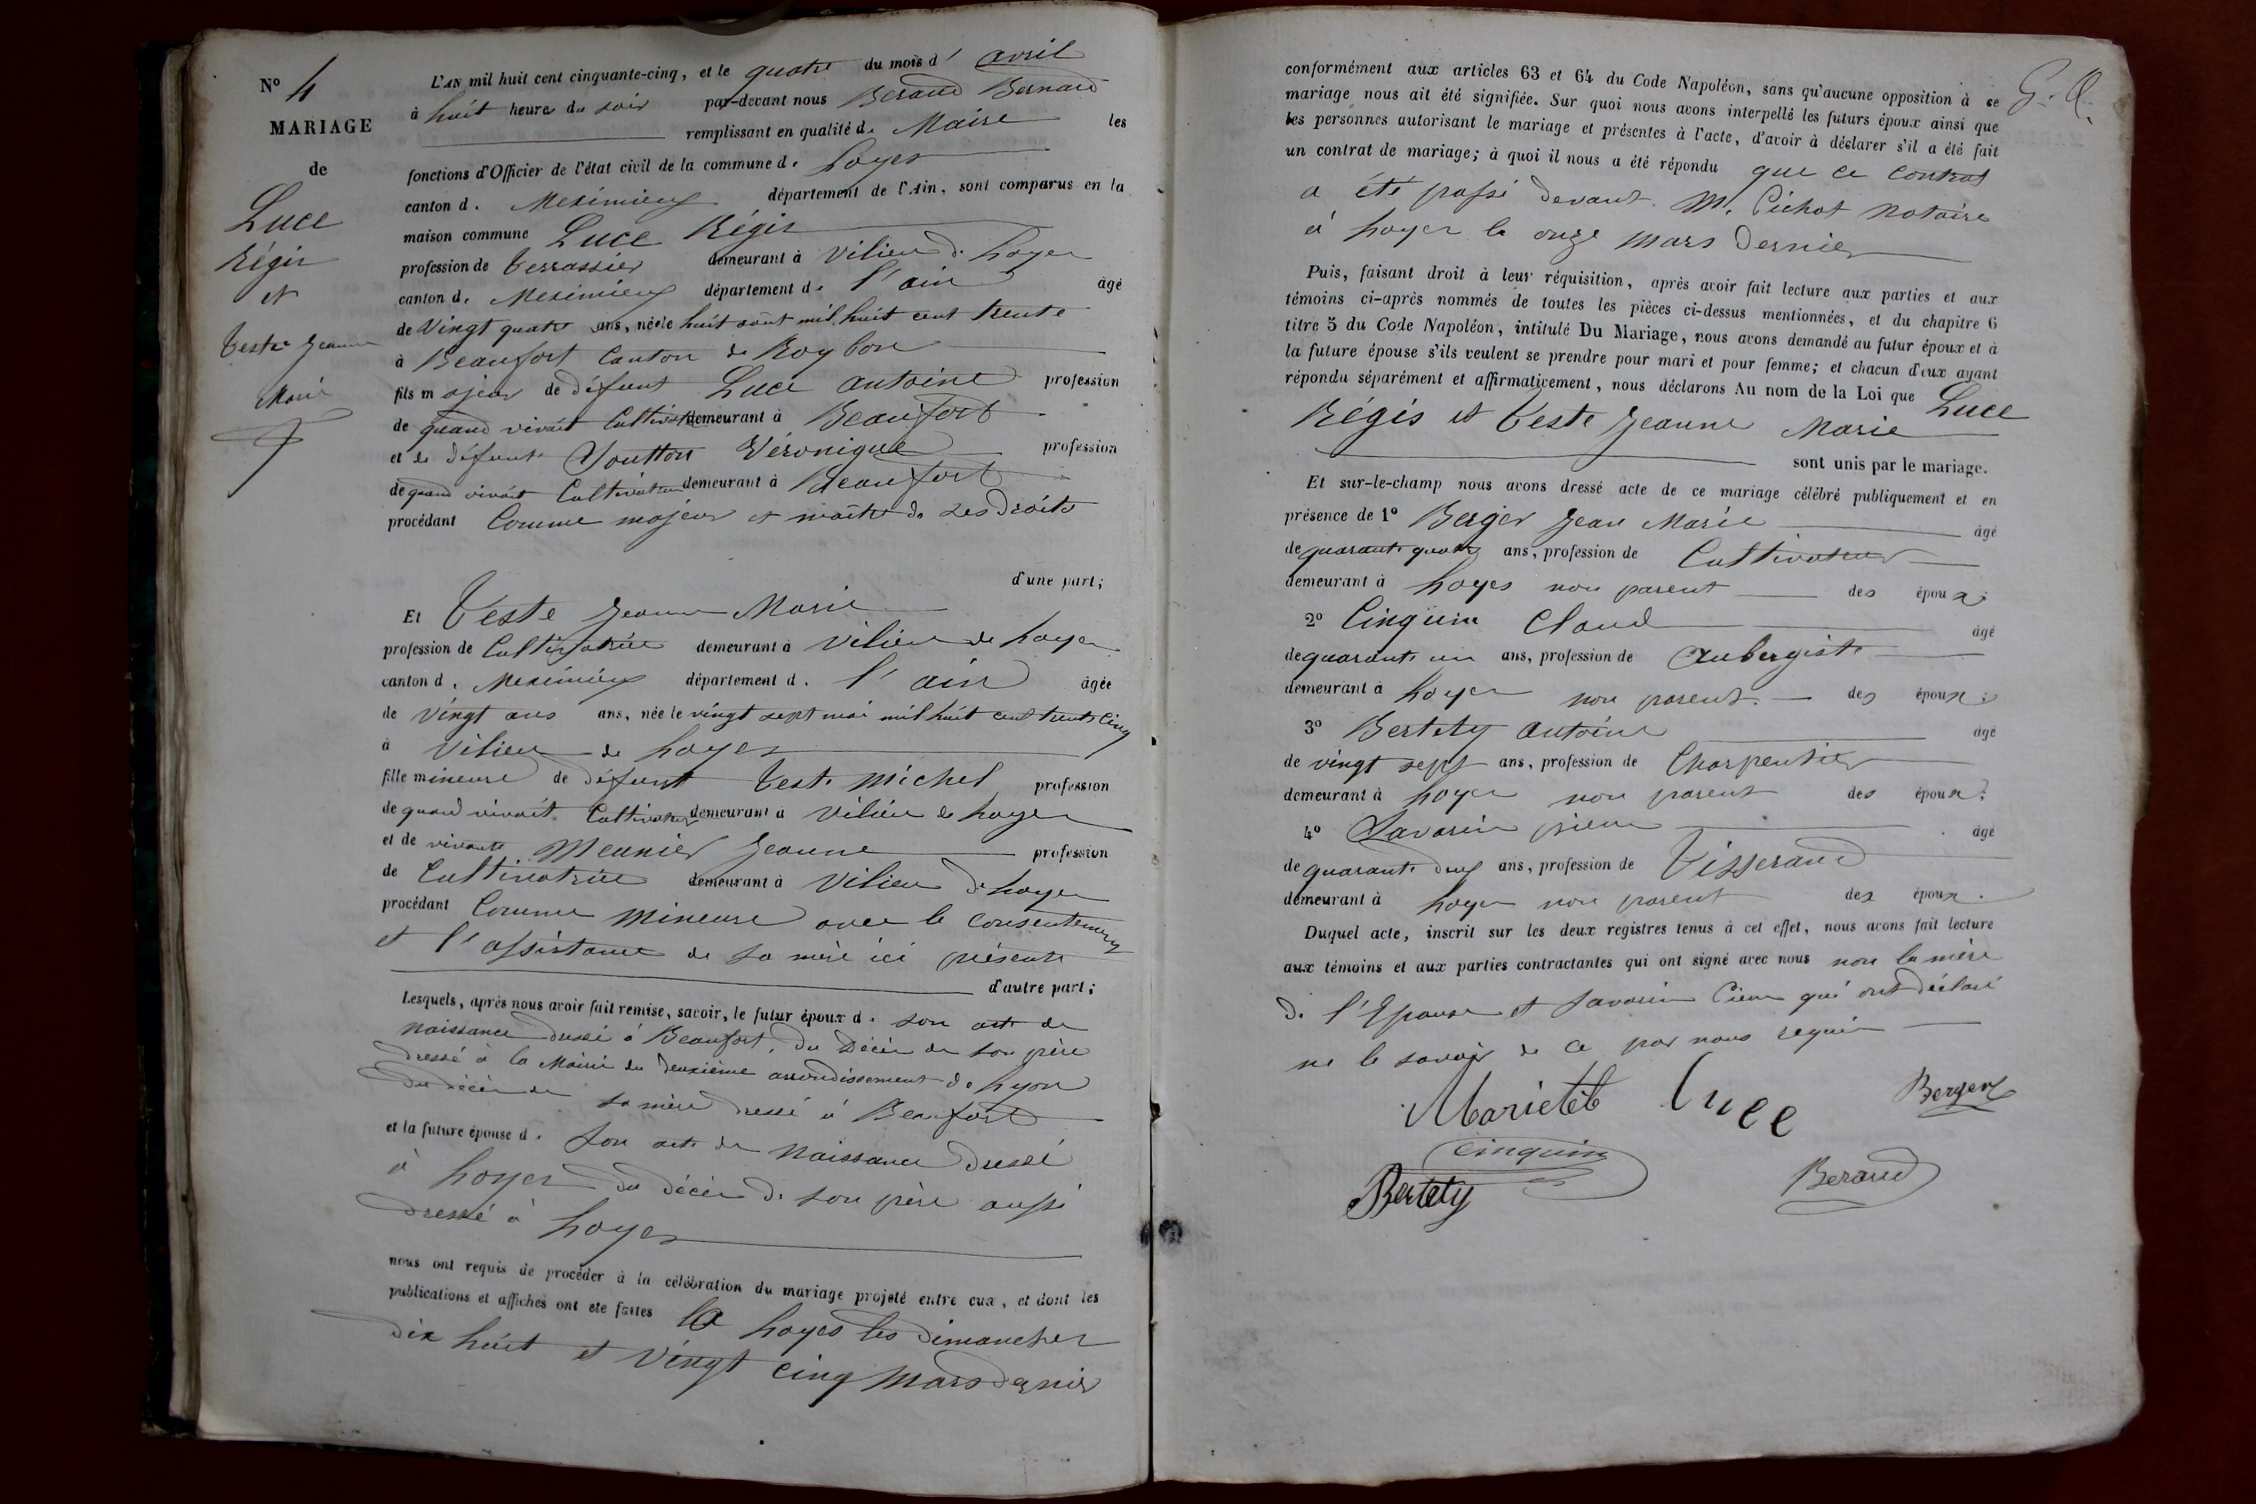 N° 4
MARIAGE
de
Luce
Régis
et
Teste Jeanne
Marie
L'AN mil huit cent cinquante-cinq, et le quatre du mois d'avril
à huit heure du soir par-devant nous Beraud Bernard
remplissant en qualité de Maire les
fonctions d'Officier de l'état civil de la commune de Loyes
canton de Meximieux département de l'Ain, sont comparus en la
maison commune Luce Régis
profession de terrassier demeurant à Vilieu de Loyes
canton de Meximieux département de l'ain âgé
de Vingt quatre ans, né le huit août mil huit cent trente
à Beaufort Canton de Roybon
fils majeur de défunt Luce antoine profession
de quand vivait Cultivateur demeurant à Beaufort
et de défunte Veronique profession
de quand vivait Cultivatrice demeurant à Beaufort
procédant Comme majeur et maître de ses droits
d'une part;
Et Teste Jeanne Marie
profession de Cultivatrice demeurant à Vilieu de Loyes
canton de Meximieux département de l'ain âgée
de vingt ans ans, née le vingt sept mai mil huit cent trente cinq
à Vilieu de Loyes
fille mineure de défunt Teste Michel profession
de quand vivait Cultivateur demeurant à Vilieu de Loyes
et de vivante Meunier Jeanne profession
de Cultivatrice demeurant à Vilieu de Loyes
procédant Comme mineure avec le consentement
et l'assistance de sa mère ici présente
d'autre part;
Lesquels, après nous avoir fait remise, savoir, le futur époux de son acte de
naissance dressé à Beaufort, du Décès de son père
dressé à la Mairie du deuxième arrondissement de Lyon
du décès de sa mère dressé à Beaufort
et la future épouse de son acte de Naissance dressé
à Loyes du décès de son père aussi
dressé à Loyes
nous ont requis de procéder à la célébration du mariage projeté entre eux, et dont les
publications et affiches ont été faites à Loyes les dimanches
dix huit et vingt cinq Mars dernier
G. Q.
conformément aux articles 63 et 64 du Code Napoléon, sans qu'aucune opposition à ce
mariage nous ait été signifiée. Sur quoi nous avons interpellé les futurs époux ainsi que
les personnes autorisant le mariage et présentes à l'acte, d'avoir à déclarer s'il a été fait
un contrat de mariage; à quoi il nous a été répondu que ce contrat
a été passé devant M. Pichot Notaire
à Loyes le onze mars dernier
Puis, faisant droit à leur réquisition, après avoir fait lecture aux parties et aux
témoins ci-après nommés de toutes les pièces ci-dessus mentionnées, et du chapitre 6
titre 5 du Code Napoléon, intitulé Du Mariage, nous avons demandé au futur époux et à
la future épouse s'ils veulent se prendre pour mari et pour femme; et chacun d'eux ayant
répondu séparément et affirmativement, nous déclarons Au nom de la Loi que Luce
Régis et Teste Jeanne Marie
sont unis par le mariage.
Et sur-le-champ nous avons dressé acte de ce mariage célébré publiquement et en
présence de 1° Berger Jean Marie âgé
de quarante quatre ans, profession de Cultivateur
demeurant à Loyes non parent des époux;
2° Cinquin Claud âgé
de quarante un ans, profession de Aubergiste
demeurant à Loyes non parent des époux;
3° Bertety Antoine âgé
de vingt sept ans, profession de Charpentier
demeurant à Loyes non parent des époux;
4° Savarin pierre âgé
de quarante deux ans, profession de Tisserand
demeurant à Loyes non parent des époux.
Duquel acte, inscrit sur les deux registres tenus à cet effet, nous avons fait lecture
aux témoins et aux parties contractantes qui ont signé avec nous non la mère
de l'Epouse et Savarin Pierre qui ont déclaré
ne le savoir de ce par nous requis
Luce Berger
Cinquin
Bertety Beraud